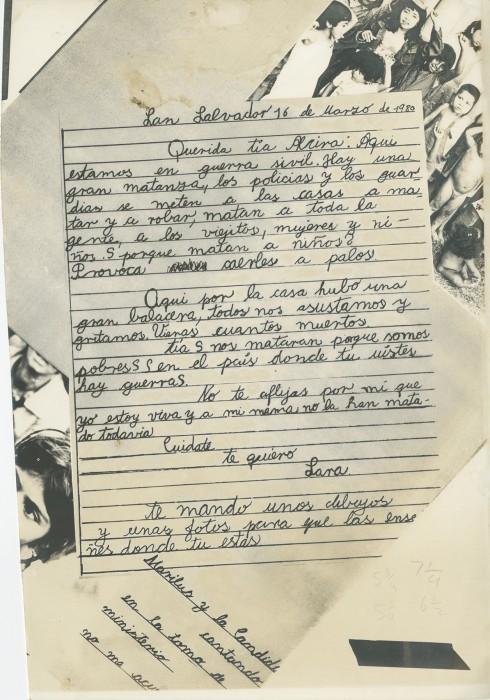 San Salvador 16 de Marzo de 1980
Querida tia Alcira: Aqui
estamos en guerra sivil. Hay una
gran matanza, los policias y los guar
dias se meten a las casas a ma-
tar y a robar, matan a toda la
gente, a los viejitos, mujeres y ni-
ños. S porque matan a niños?
Provoca caerles a palos
Aqui por la casa hubo una
gran balacera, todos nos asustamos y
gritamos. Vieras cuantos muertos
tia S nos mataran porque somos
pobresS S en el país donde tu vistes
hay guerraS.
No te aflijas por mi que
yo estoy viva y a mi mema no la han mata-
do todavia
Cuidate
te quiero
Lara
te mando unos dibujos
y unas fotos para que las ense
ñes donde tu estas
Marilus y la Candida
cantando
en la toma de
ministerio
no me acu
5¾ 7¼